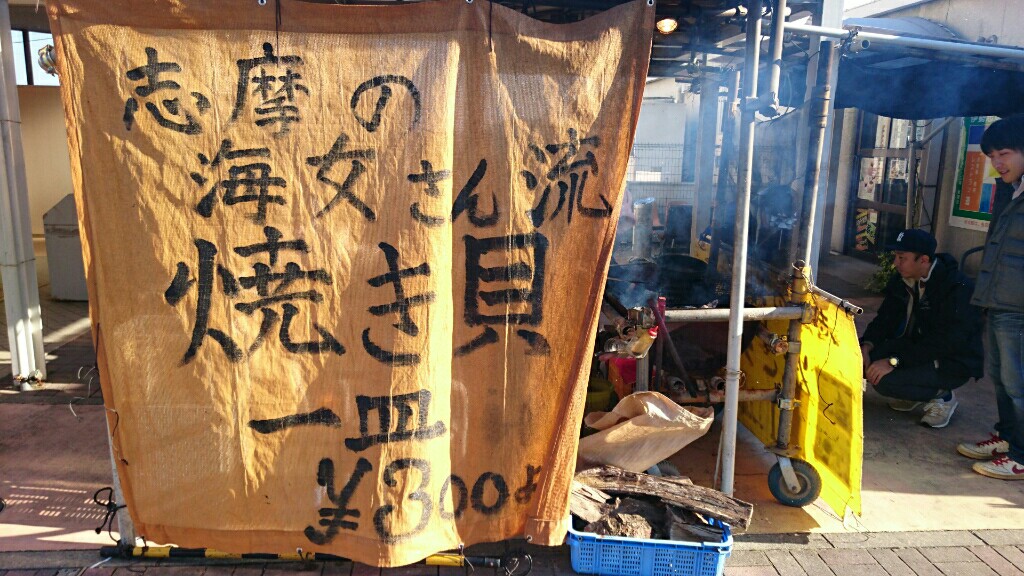 志摩の
海女さん流
焼き貝
一皿
¥300よ